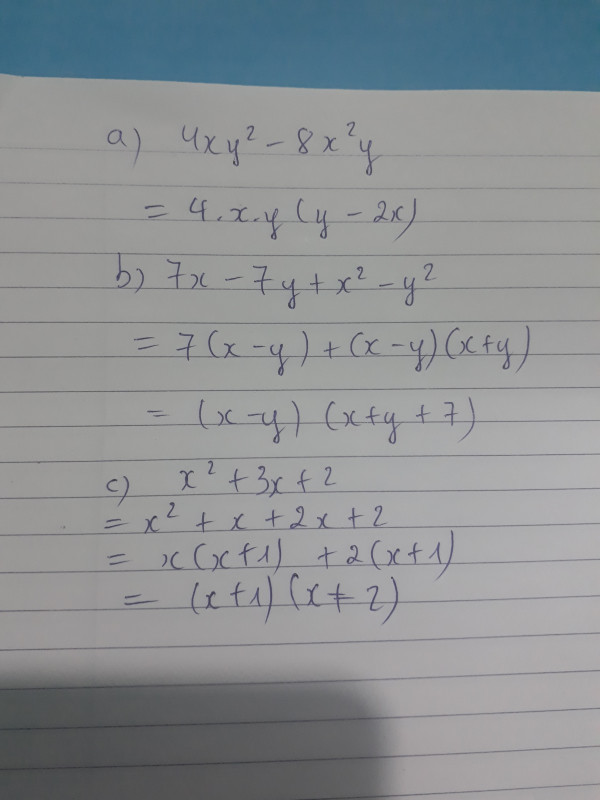 a) 4xy² - 8x²y
= 4.x.y(y - 2x)
b) 7x - 7y + x² - y²
= 7(x - y) + (x - y)(x + y)
= (x - y) (x + y + 7)
c) x² + 3x + 2
= x² + x + 2x + 2
= x(x + 1) + 2(x + 1)
= (x + 1)(x + 2)